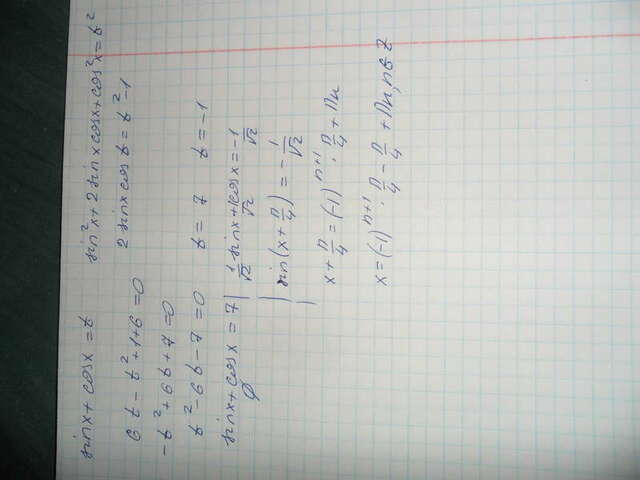 sinx + cosx = t   sin²x + 2sinxcosx + cos²x = t²
6t - t² + 1 + 6 = 0   2sinxcos t = t² - 1
-t² + 6t + 7 = 0
t² - 6t - 7 = 0   t = 7   t = -1
sinx + cosx = 7 | 1/√2 sinx + 1/√2 cosx = -1/√2
∅ | sin(x + π/4) = -1/√2
x + π/4 = (-1)ⁿ⁺¹ · π/4 + πn
x = (-1)ⁿ⁺¹ · π/4 - π/4 + πn, n∈Z